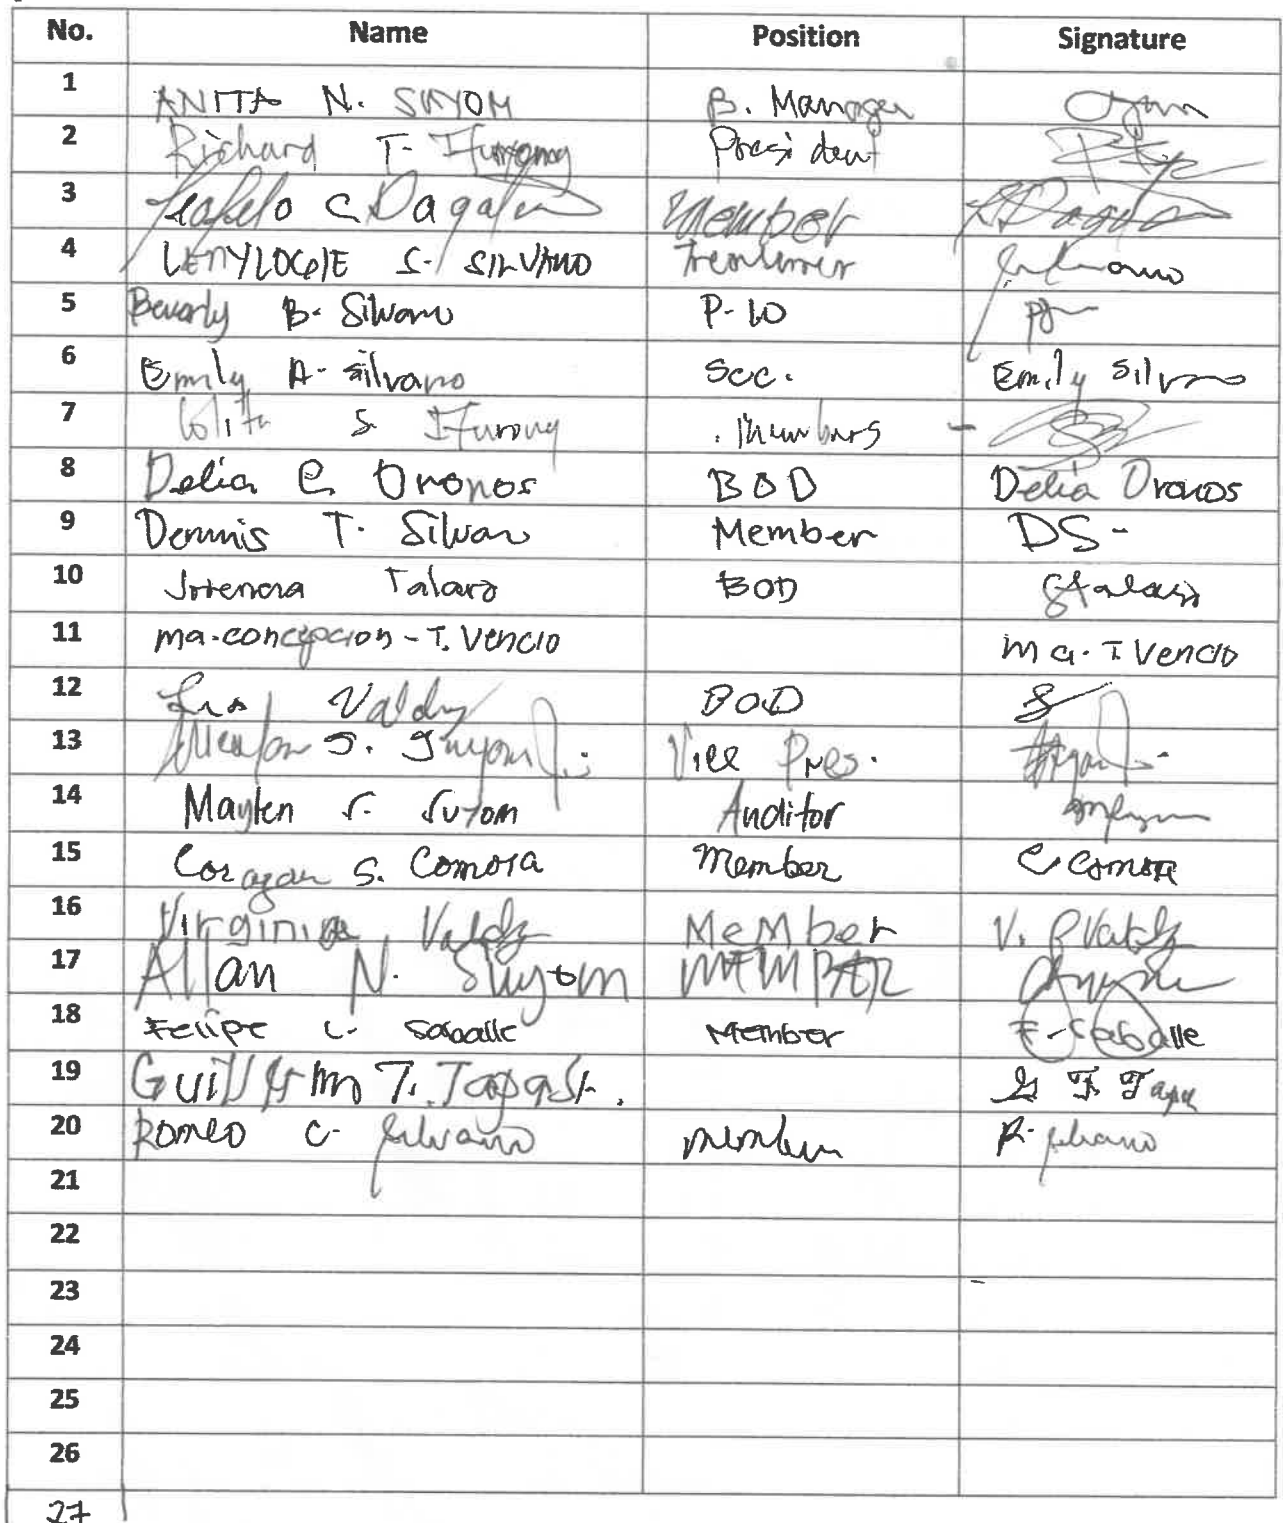 No. Name Position Signature
1 ANITA N. SUYOM B. Manager
2 Richard T. Ifurong President
3 C. Dagala Member
4 S. SILVANO Treasurer
5 Beverly B. Silvano P.IO
6 Emily A. Silvano Sec. Emily Silvano
7 Lolita S. Ifurong Members
8 Delia C. Oronos BOD Delia Oronos
9 Dennis T. Silvan Member DS-
10 Talaro BOD
11 ma. concepcion - T. Vencio ma. T. Vencio
12 Valdz BOD
13 S. Suyom Jr. Vice Pres.
14 Maylen S. Suyom Auditor
15 Corazon S. Comora Member C Comora
16 Virginia Valdz Member V. P Valdz
17 Allan N. Suyom MEMBER
18 Felipe C. Saballe Member F. Saballe
19 Guillermo T. G T Tapa
20 Romeo C. Silvano member R. Silvano
21
22
23
24
25
26
27